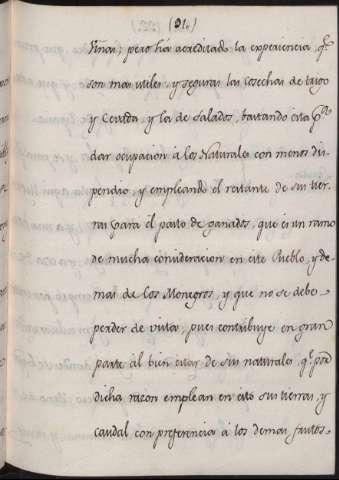 (94)
viñas; pero há acreditado la experiencia, q.e
son mas utiles, y seguras las cosechas de trigo
y Cevada, y la de salados, bastando esta p.a
dar ocupacion á los Naturales con menos dis-
pendio, y empleando el restante de sus tier-
ras para el pasto de ganados, que es un ramo
de mucha consideracion en este Pueblo, y de-
mas de los Monegros, y que no se debe
perder de vista, pues contribuye en gran
parte al bien estar de sus naturales, q.e por
dicha razon emplean en esto sus tierras, y
caudal con preferencia á los demas frutos.